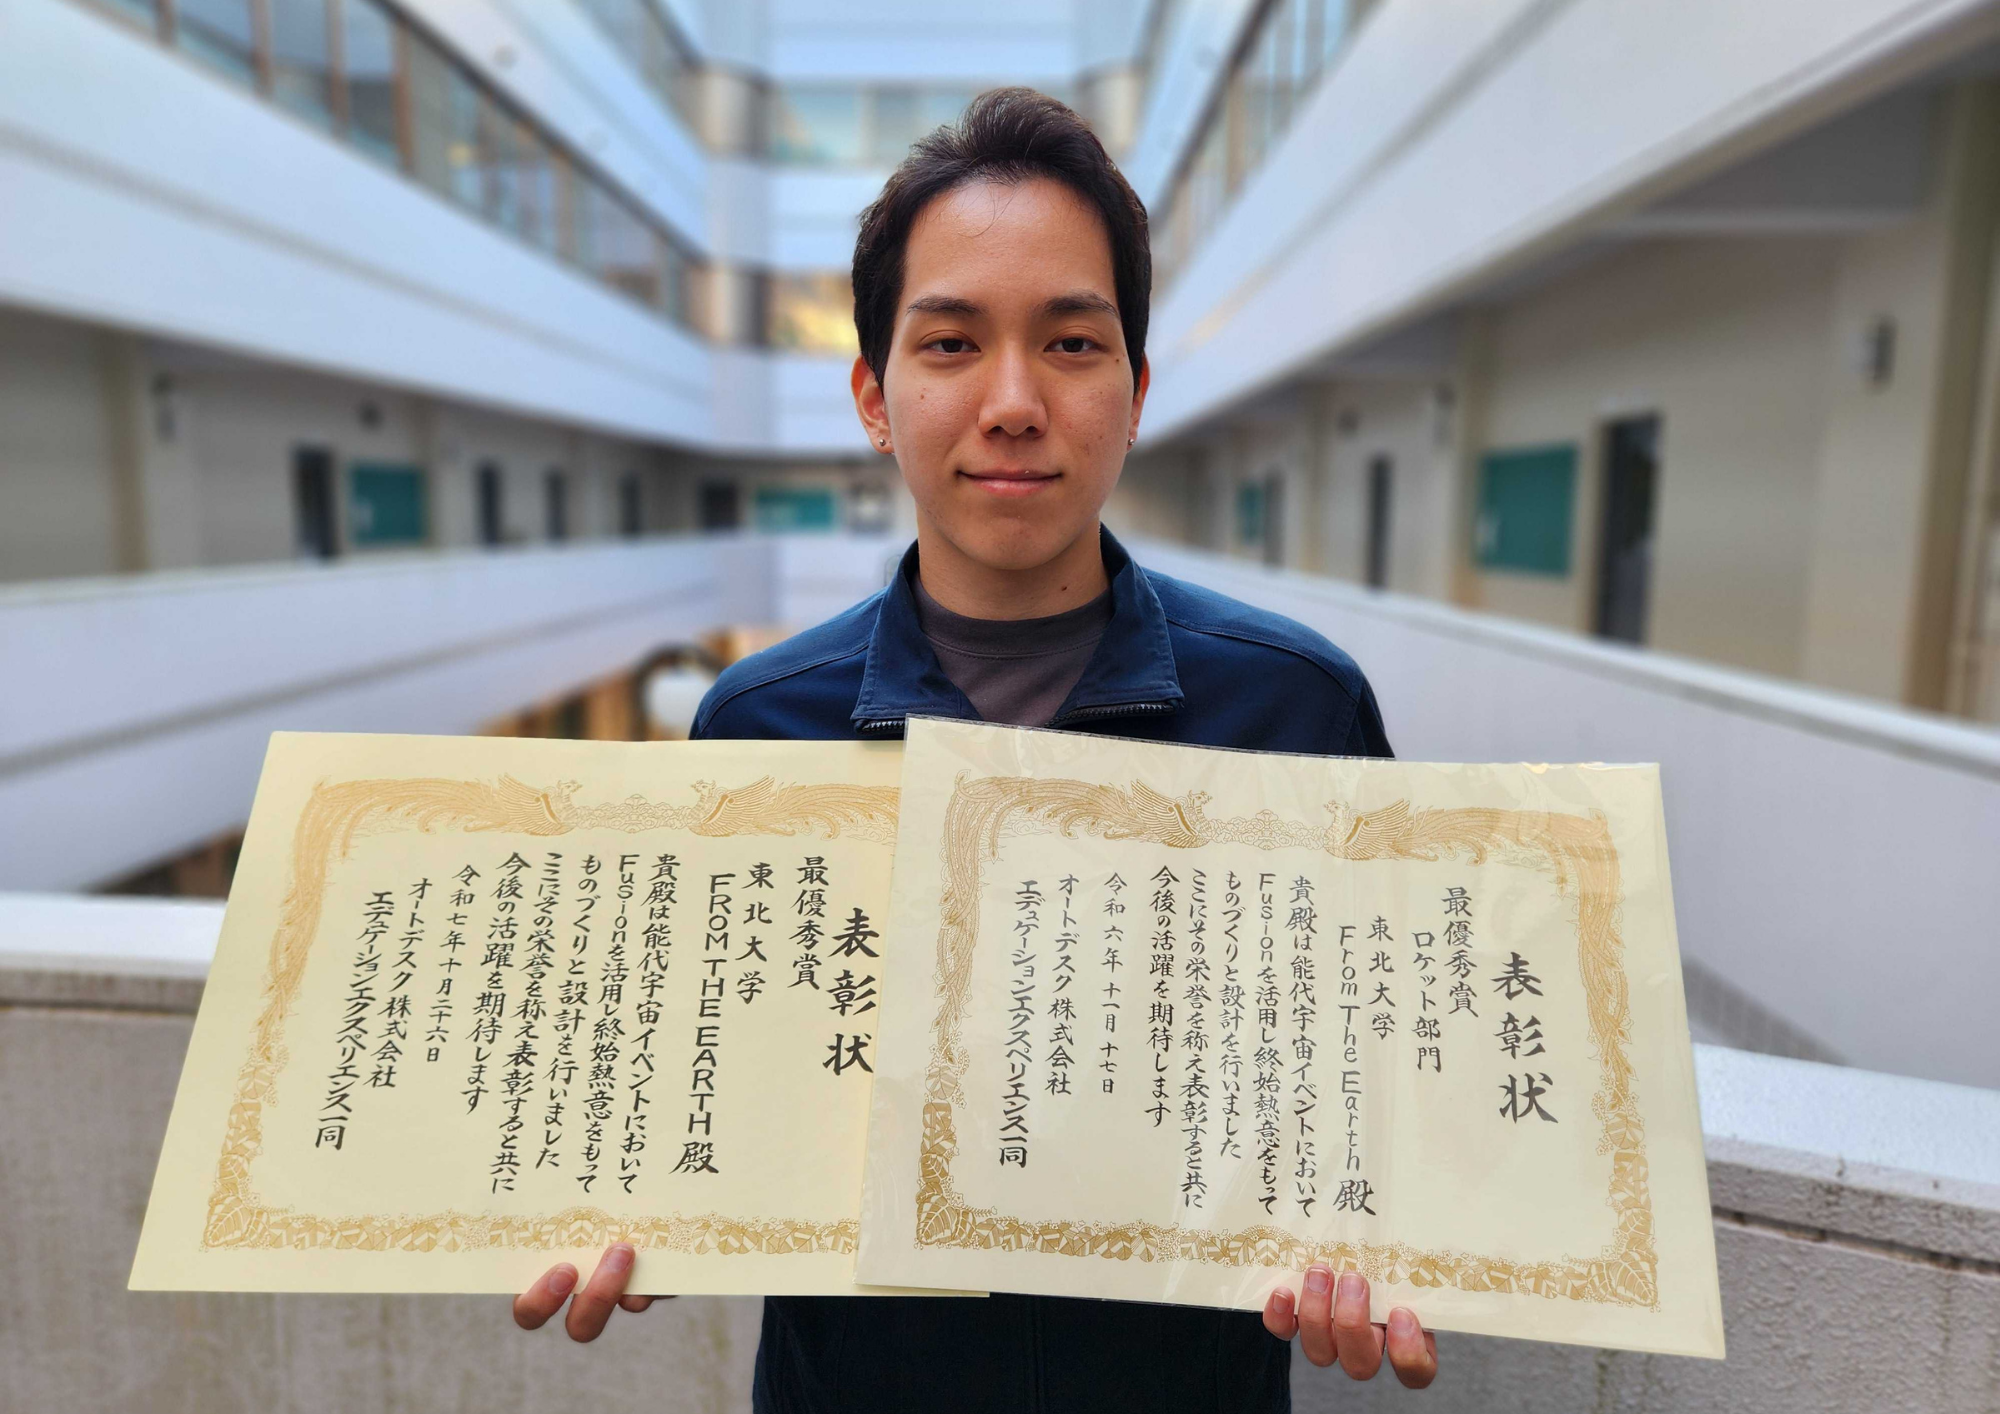 表彰状
最優秀賞
東北大学
FROM THE EARTH 殿
貴殿は能代宇宙イベントにおいて
Fusionを活用し終始熱意をもって
ものづくりと設計を行いました
ここにその栄誉を称え表彰すると共に
今後の活躍を期待します
令和七年十月二十六日
オートデスク株式会社
エデュケーションエクスペリエンス一同
表彰状
最優秀賞
ロケット部門
東北大学
From The Earth 殿
貴殿は能代宇宙イベントにおいて
Fusionを活用し終始熱意をもって
ものづくりと設計を行いました
ここにその栄誉を称え表彰すると共に
今後の活躍を期待します
令和六年十一月十七日
オートデスク株式会社
エデュケーションエクスペリエンス一同